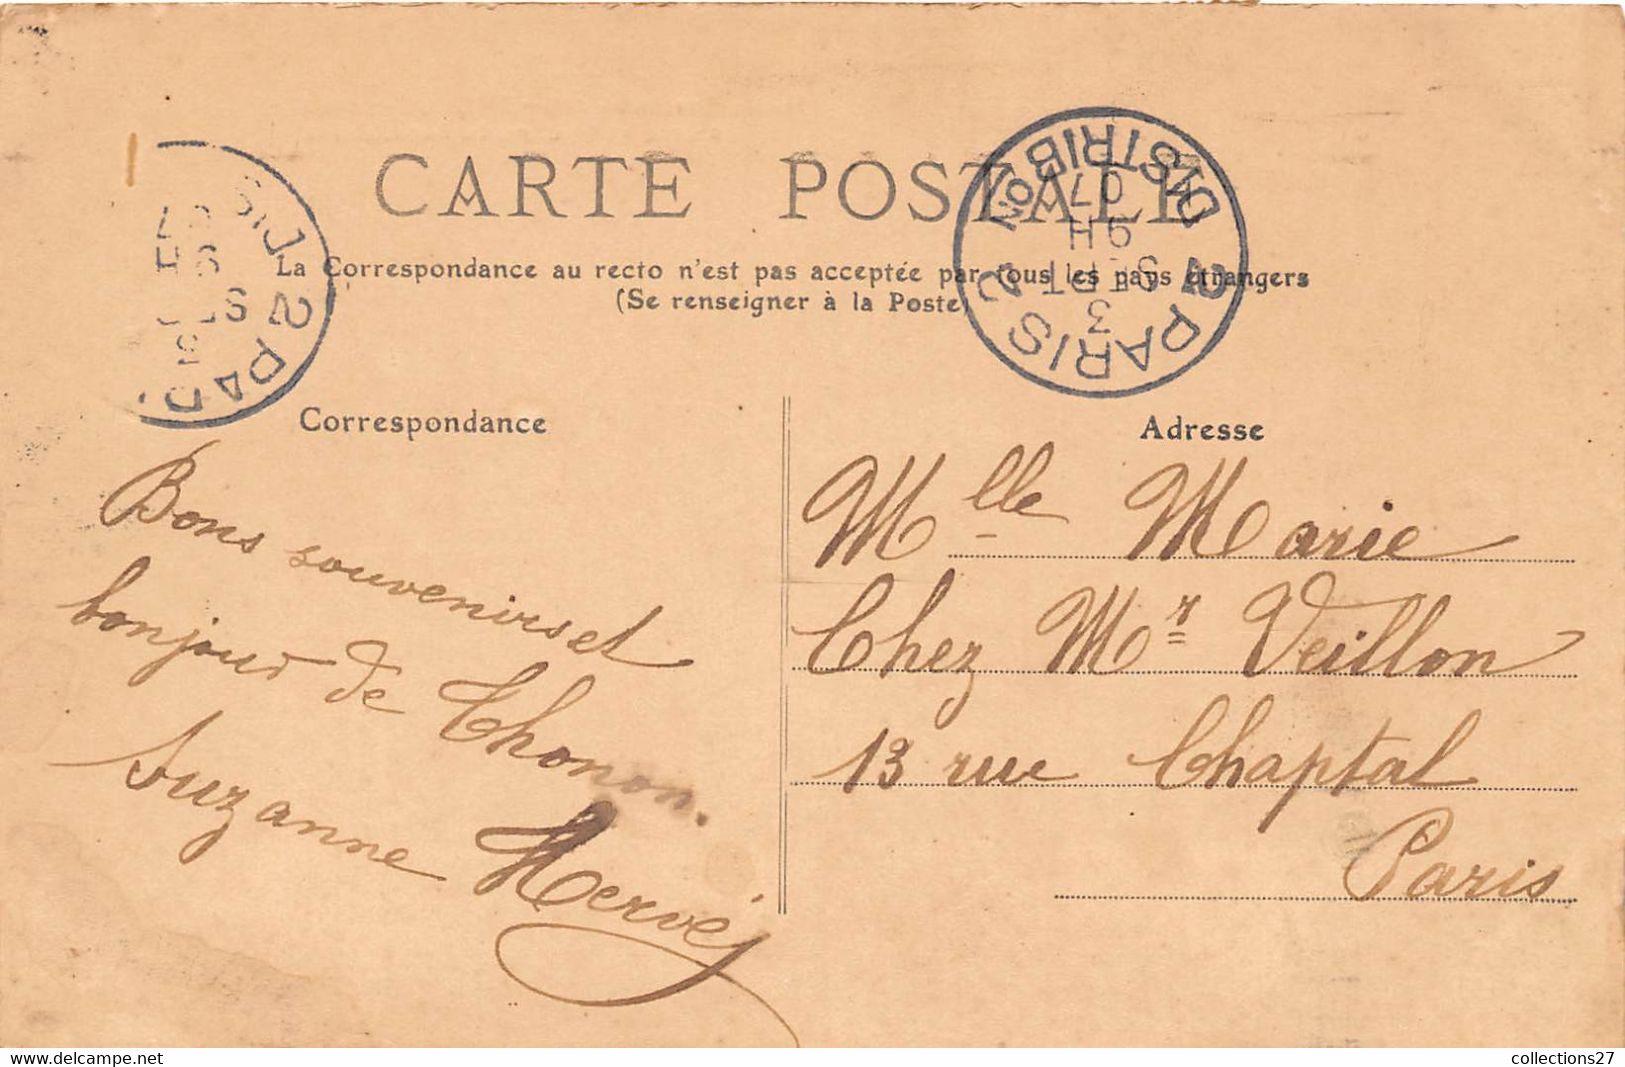 CARTE POSTALE
La Correspondance au recto n'est pas acceptée par tous les pays étrangers
(Se renseigner à la Poste)
PARIS 2
DISTRIBon
3
SEPT
9H
07
2 PAR
DIS
Correspondance
Bons souvenirs et
bonjour de Thonon.
Suzanne Hervé
Adresse
Mlle Marie
Chez Mr Veillon
13 rue Chaptal
Paris
collections27